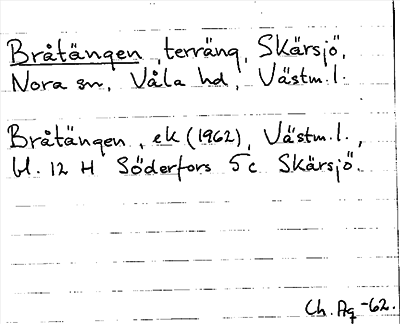 Bråtängen, terräng, Skärsjö,
Nora sn, Våla hd, Västm.l.
Bråtängen, ek (1962), Västm.l.,
bl. 12 H Söderfors 5c Skärsjö.
Ch. Ag -62.